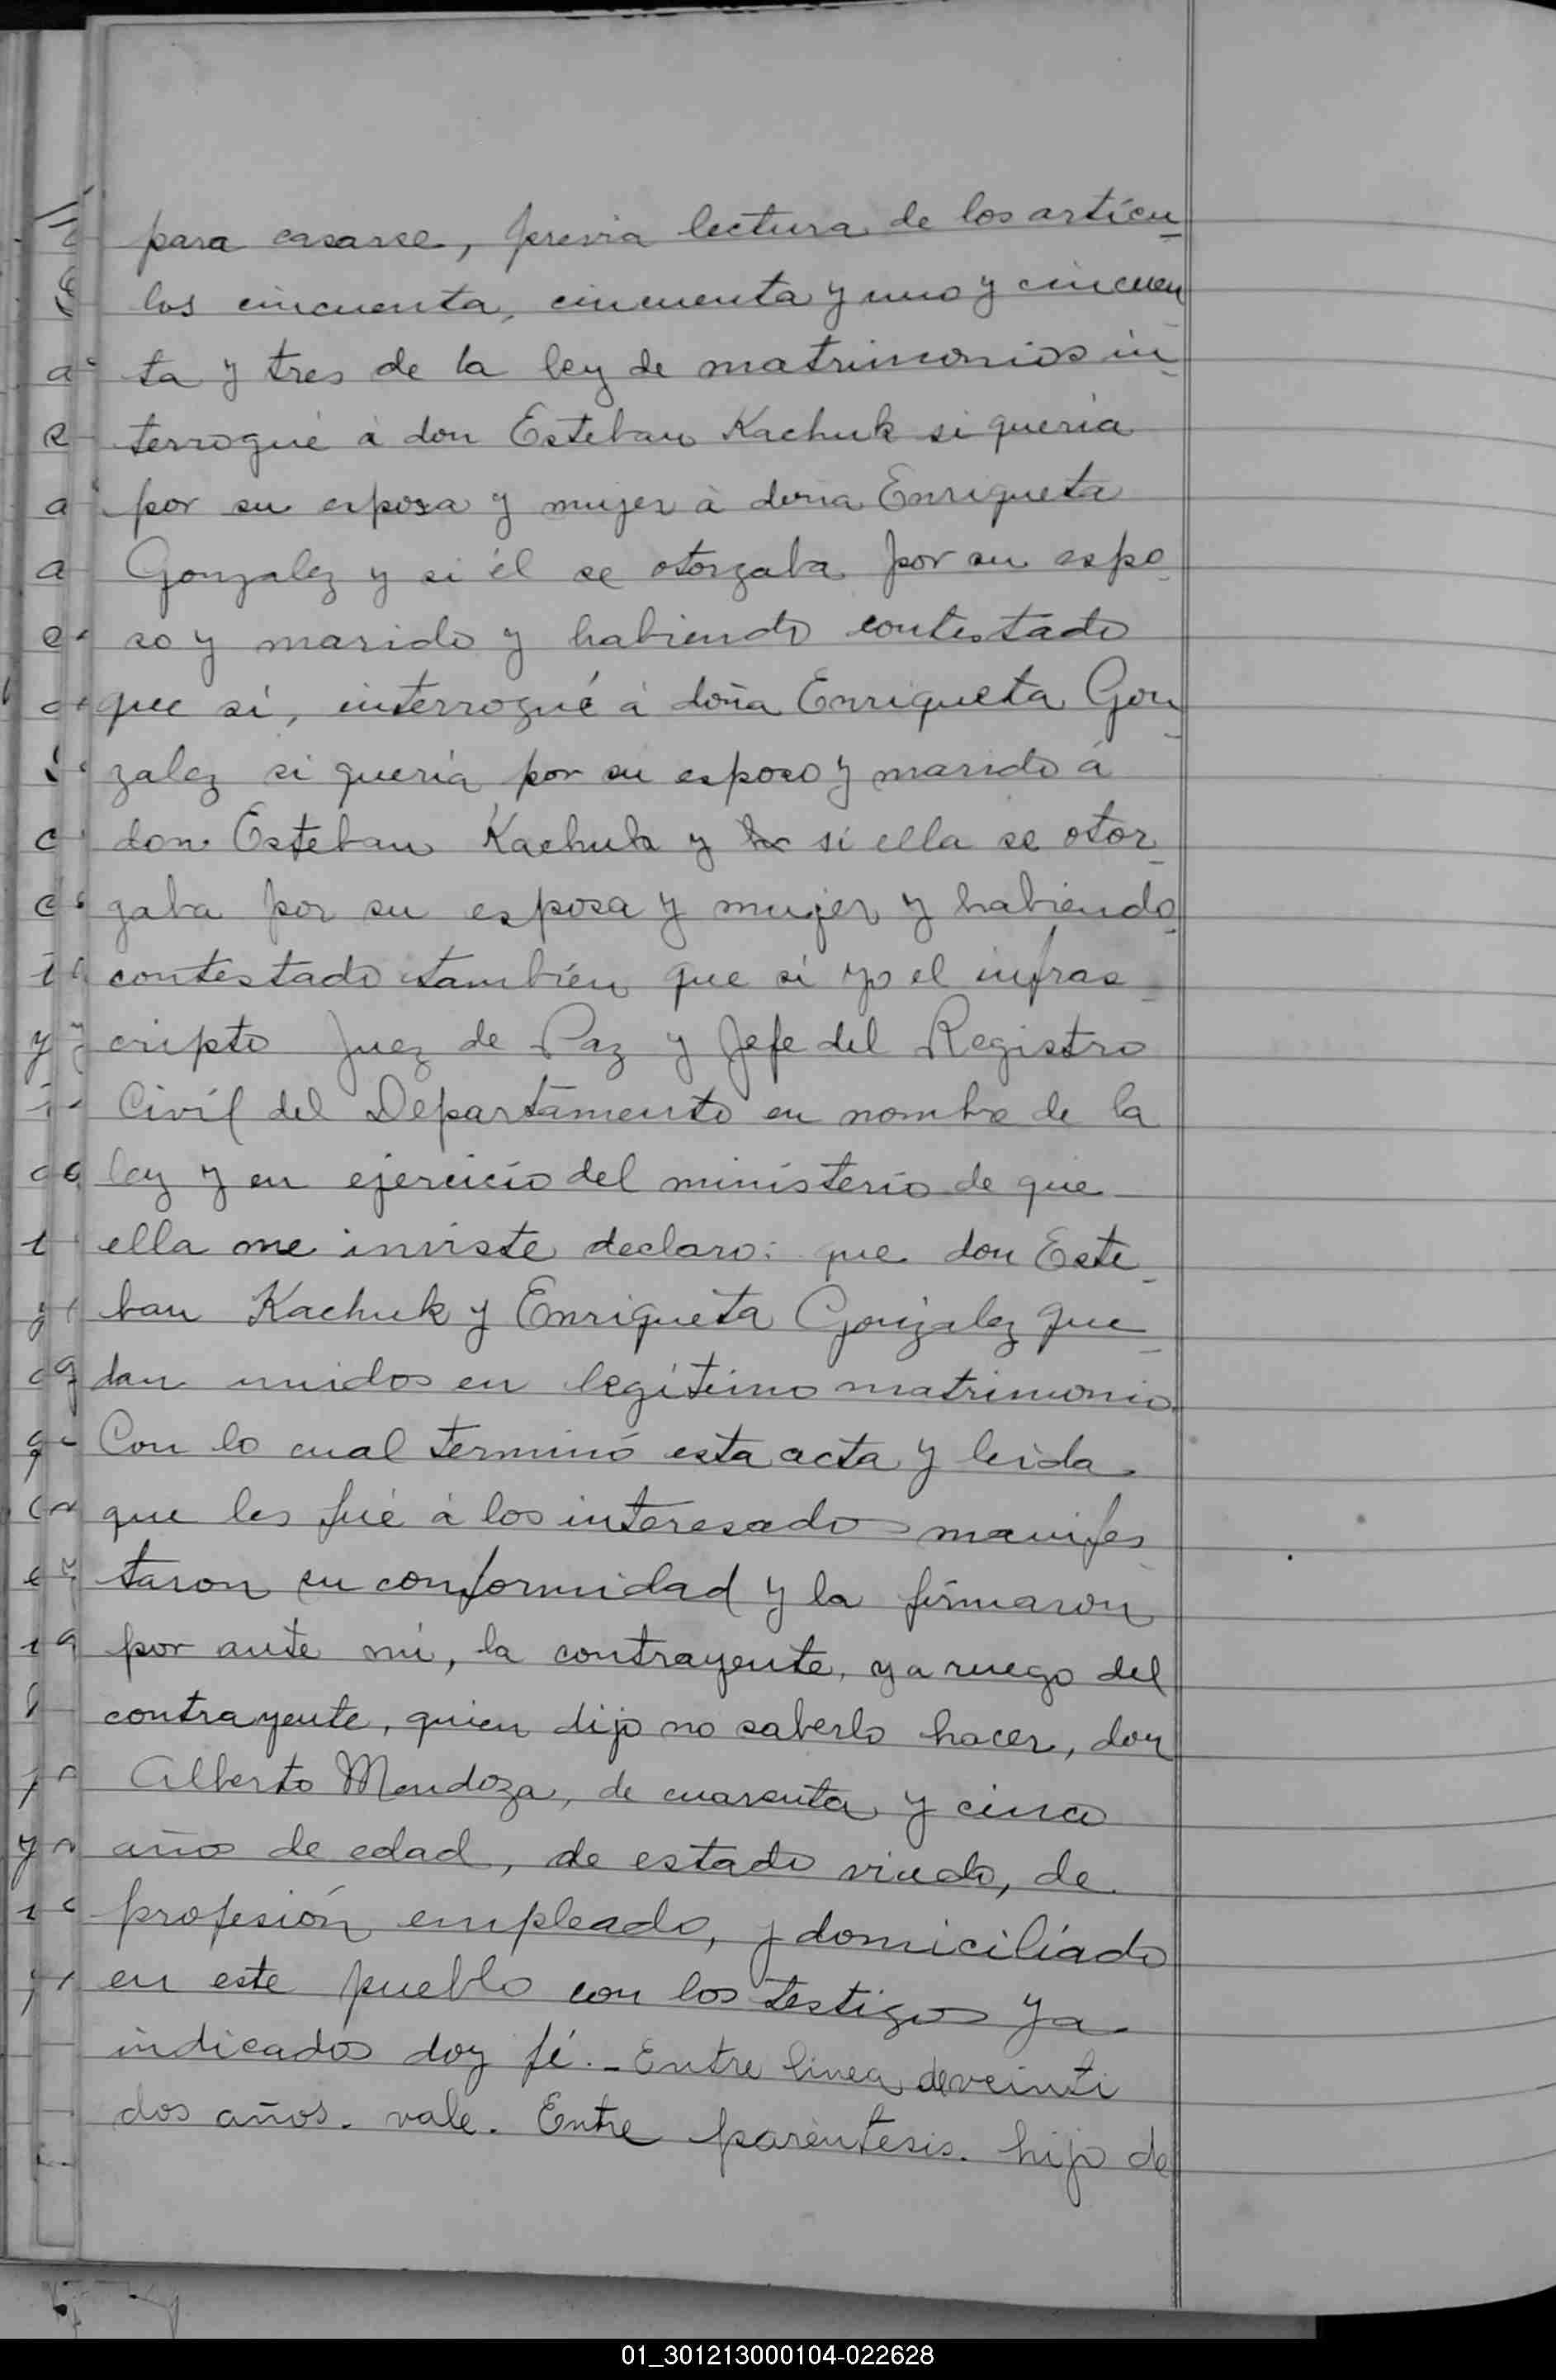 para casarse, previa lectura de los artícu-
los cincuenta, cincuenta y uno y cincuen-
ta y tres de la ley de matrimonios in-
terrogué á don Esteban Kachuk si quería
por su esposa y mujer á doña Enriqueta
Gonzalez y si él se otorgaba por su espo-
so y marido y habiendo contestado
que sí, interrogué á doña Enriqueta Gon-
zalez si quería por su esposo y marido á
don Esteban Kachuk y si ella se otor-
gaba por su esposa y mujer y habiendo
contestado también que sí yo el infras-
cripto Juez de Paz y Jefe del Registro
Civil del Departamento en nombre de la
ley y en ejercicio del ministerio de que
ella me inviste declaro: que don Este-
ban Kachuk y Enriqueta Gonzalez que-
dan unidos en legítimo matrimonio.
Con lo cual terminó esta acta y leida
que les fué á los interesados manifes-
taron su conformidad y la firmaron
por ante mí, la contrayente, y a ruego del
contrayente, quien dijo no saberlo hacer, don
Alberto Mendoza, de cuarenta y cinco
años de edad, de estado viudo, de
profesión empleado, y domiciliado
en este pueblo con los testigos ya
indicados doy fé.- Entre linea de veinti
dos años. vale. Entre paréntesis. hijo de
01_301213000104-022628